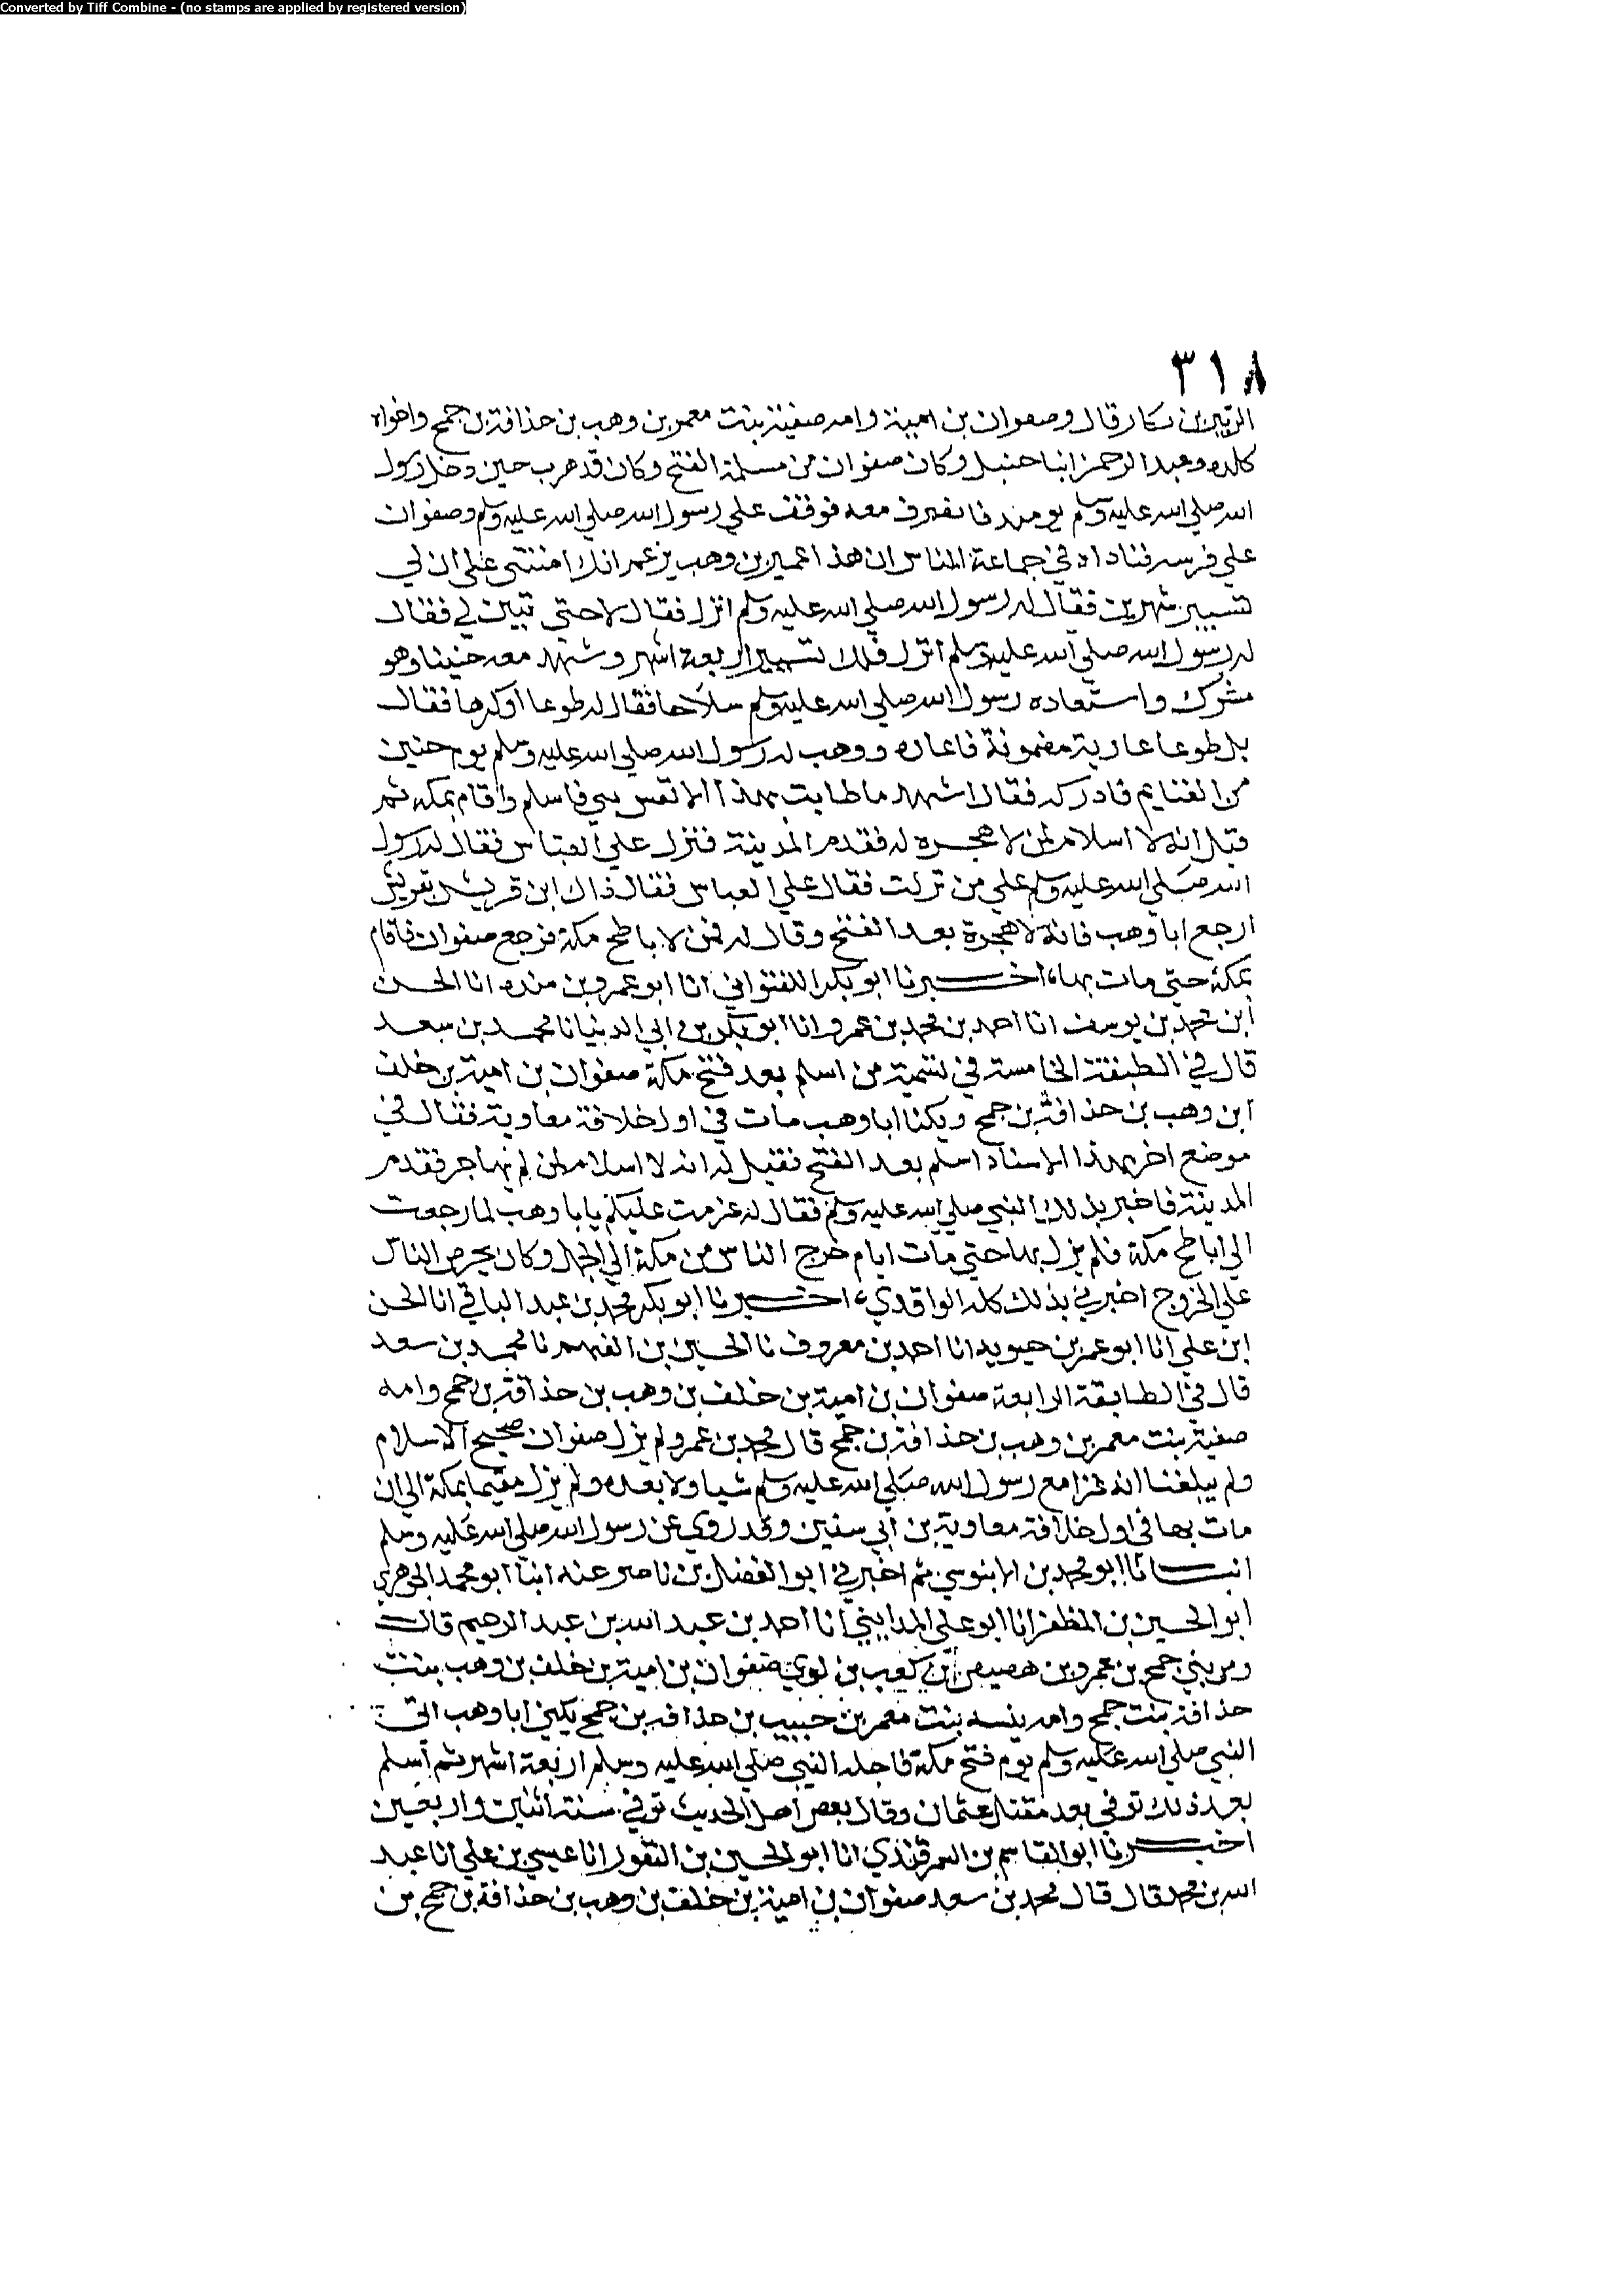 Converted by Tiff Combine - (no stamps are applied by registered version)
٣١٨
الزبير بن بكار قال وصفوان بن امية وامه صفية بنت معمر بن وهب بن حذافة بن جمح واخواه
كلده وعبد الرحمن ابنا حنبل وكان صفوان من مسلمة الفتح وكان قد هرب حين دخل رسول
الله صلي الله عليه وسلم يومئذ فانصرف معه فوقف علي رسول الله صلي الله عليه وسلم وصفوان
علي فرسه فناداه في جماعة الناس ان هذا عمير بن وهب يزعم انك امنتني علي ان لي
تسيير شهرين فقال له رسول الله صلي الله عليه وسلم انزل فقال لا حتي تبين لي فقال
له رسول الله صلي الله عليه وسلم انزل فلك تسيير اربعة اشهر وشهد معه حنينا وهو
مشرك واستعاده رسول الله صلي الله عليه وسلم سلاحا فقال له طوعا اوكرها فقال
بل طوعا عارية مضمونة فاعاره ووهب له رسول الله صلي الله عليه وسلم يوم حنين
من الغنايم فادركه فقال اشهد ما طابت بهذا الا نفس نبي فاسلم واقام بمكه ثم
قيل انه لا اسلام لمن لا هجره له فقدم المدينة فنزل علي العباس فقال له رسول
الله صلي الله عليه وسلم علي من نزلت فقال علي العباس فقال ذاك ابن قريش بقريش
ارجع ابا وهب فانه لا هجرة بعد الفتح وقال له فمن لاباطح مكة فرجع صفوان فاقام
بمكة حتي مات بها، اخبرنا ابو بكر اللفتواني انا ابو عمرو بن منده انا الحسن
ابن محمد بن يوسف انا احمد بن محمد بن عمر وانا ابو بكر بن ابي الدنيا نا محمد بن سعد
قال في الطبقة الخامسة في تسمية من اسلم بعد فتح مكة صفوان بن امية بن خلف
ابن وهب بن حذافة بن جمح ويكنا ابا وهب مات في اول خلافة معاوية فقال في
موضع اخر بهذا الاسناد اسلم بعد الفتح فقيل له انه لا اسلام لمن لم يهاجر فقدم
المدينة فاخبر بذلك النبي صلي الله عليه وسلم فقال له عزمت عليكم يابا وهب لما رجعت
الي اباطح مكة فلم يزل بها حتي مات ايام خرج الناس من مكة الي الجمل وكان يحرص الناس
علي الخروج اخبرني بذلك كله الواقدي، اخبرنا ابو بكر محمد بن عبد الباقي انا الحسن
ابن علي انا ابو عمر بن حيويه انا احمد بن معروف نا الحسين بن الفهم نا محمد بن سعد
قال في الطابقة الرابعة صفوان بن امية بن خلف بن وهب بن حذافة بن جمح وامه
صفية بنت معمر بن وهب بن حذافة بن جمح قال محمد بن عمر ولم يزل صفوان صحيح الاسلام
ولم يبلغنا انه غزا مع رسول الله صلي الله عليه وسلم شيا ولا بعده ولم يزل مقيما بمكة الي ان
مات بها في اول خلافة معاوية بن ابي سفين وقد روي عن رسول الله صلي الله عليه وسلم
انبانا ابو محمد بن الابنوسي ثم اخبرني ابو الفضل بن ناصر عنه ابنا ابو محمد الجوهري
ابو الحسين بن المظفر انا ابو علي المدايني انا احمد بن عبد الله بن عبد الرحيم قال
ومن بني جمح بن عمرو بن هصيص ابن كعب بن لوي صفوان بن امية بن خلف بن وهب بنت
حذافة بنت جمح وامه بنت معمر بن حبيب بن حذافه بن جمح يكني ابا وهب اتي
النبي صلي الله عليه وسلم يوم فتح مكة فاجله النبي صلي الله عليه وسلم اربعة اشهر ثم اسلم
بعد ذلك توفي بعد مقتل عثمان وقال بعض اهل الحديث توفي سنة اثنين واربعين
اخبرنا ابو القاسم بن السمرقندي انا ابو الحسين بن النقور انا عيسي بن علي انا عبد
الله بن محمد قال قال محمد بن سعد صفوان بن امية بن خلف بن وهب بن حذافة بن جمح بن